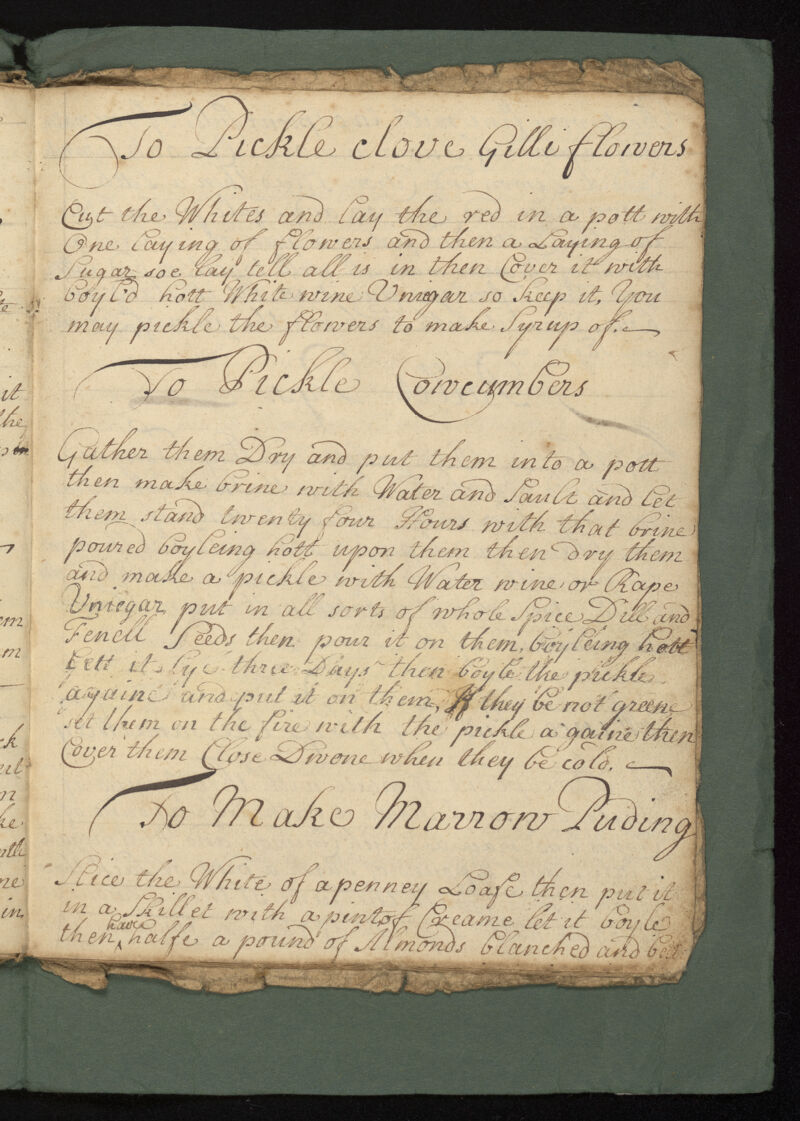 To Pickle clove Gilli flowers
Cut the Whites and lay the red in a pott with
One laying of flowers and then a Laying of
Sugar soe lay tell all is in then Cover it with
boyl'd hott White wine Vniegar so keep it, You
may pickle the flowers to make Syrup of.
To Pickle Cowcumbers
Gather them Dry and put them into a pott
then make brine with Water and Sault and let
them stand twenty four Hours with that brine
poured boyleing hott upon them then dry them
and make a pickle with Water wine or Rape
Vniegar put in all sorts of whole Spice Dill and
Fenell Seeds then pour it on them, boyleing hott
Lett it lye three Days then boyle the pickle
againe and put it on them, If they be not greene
set them on the fire with the pickle againe then
Cover them Close Dwone when they be cold.
To Make Marrow Puding
Slice the White of a penney Loafe then put it
in a Skillet with a pint of Creame let it boyle
then have halfe a pound of Almonds blanched and